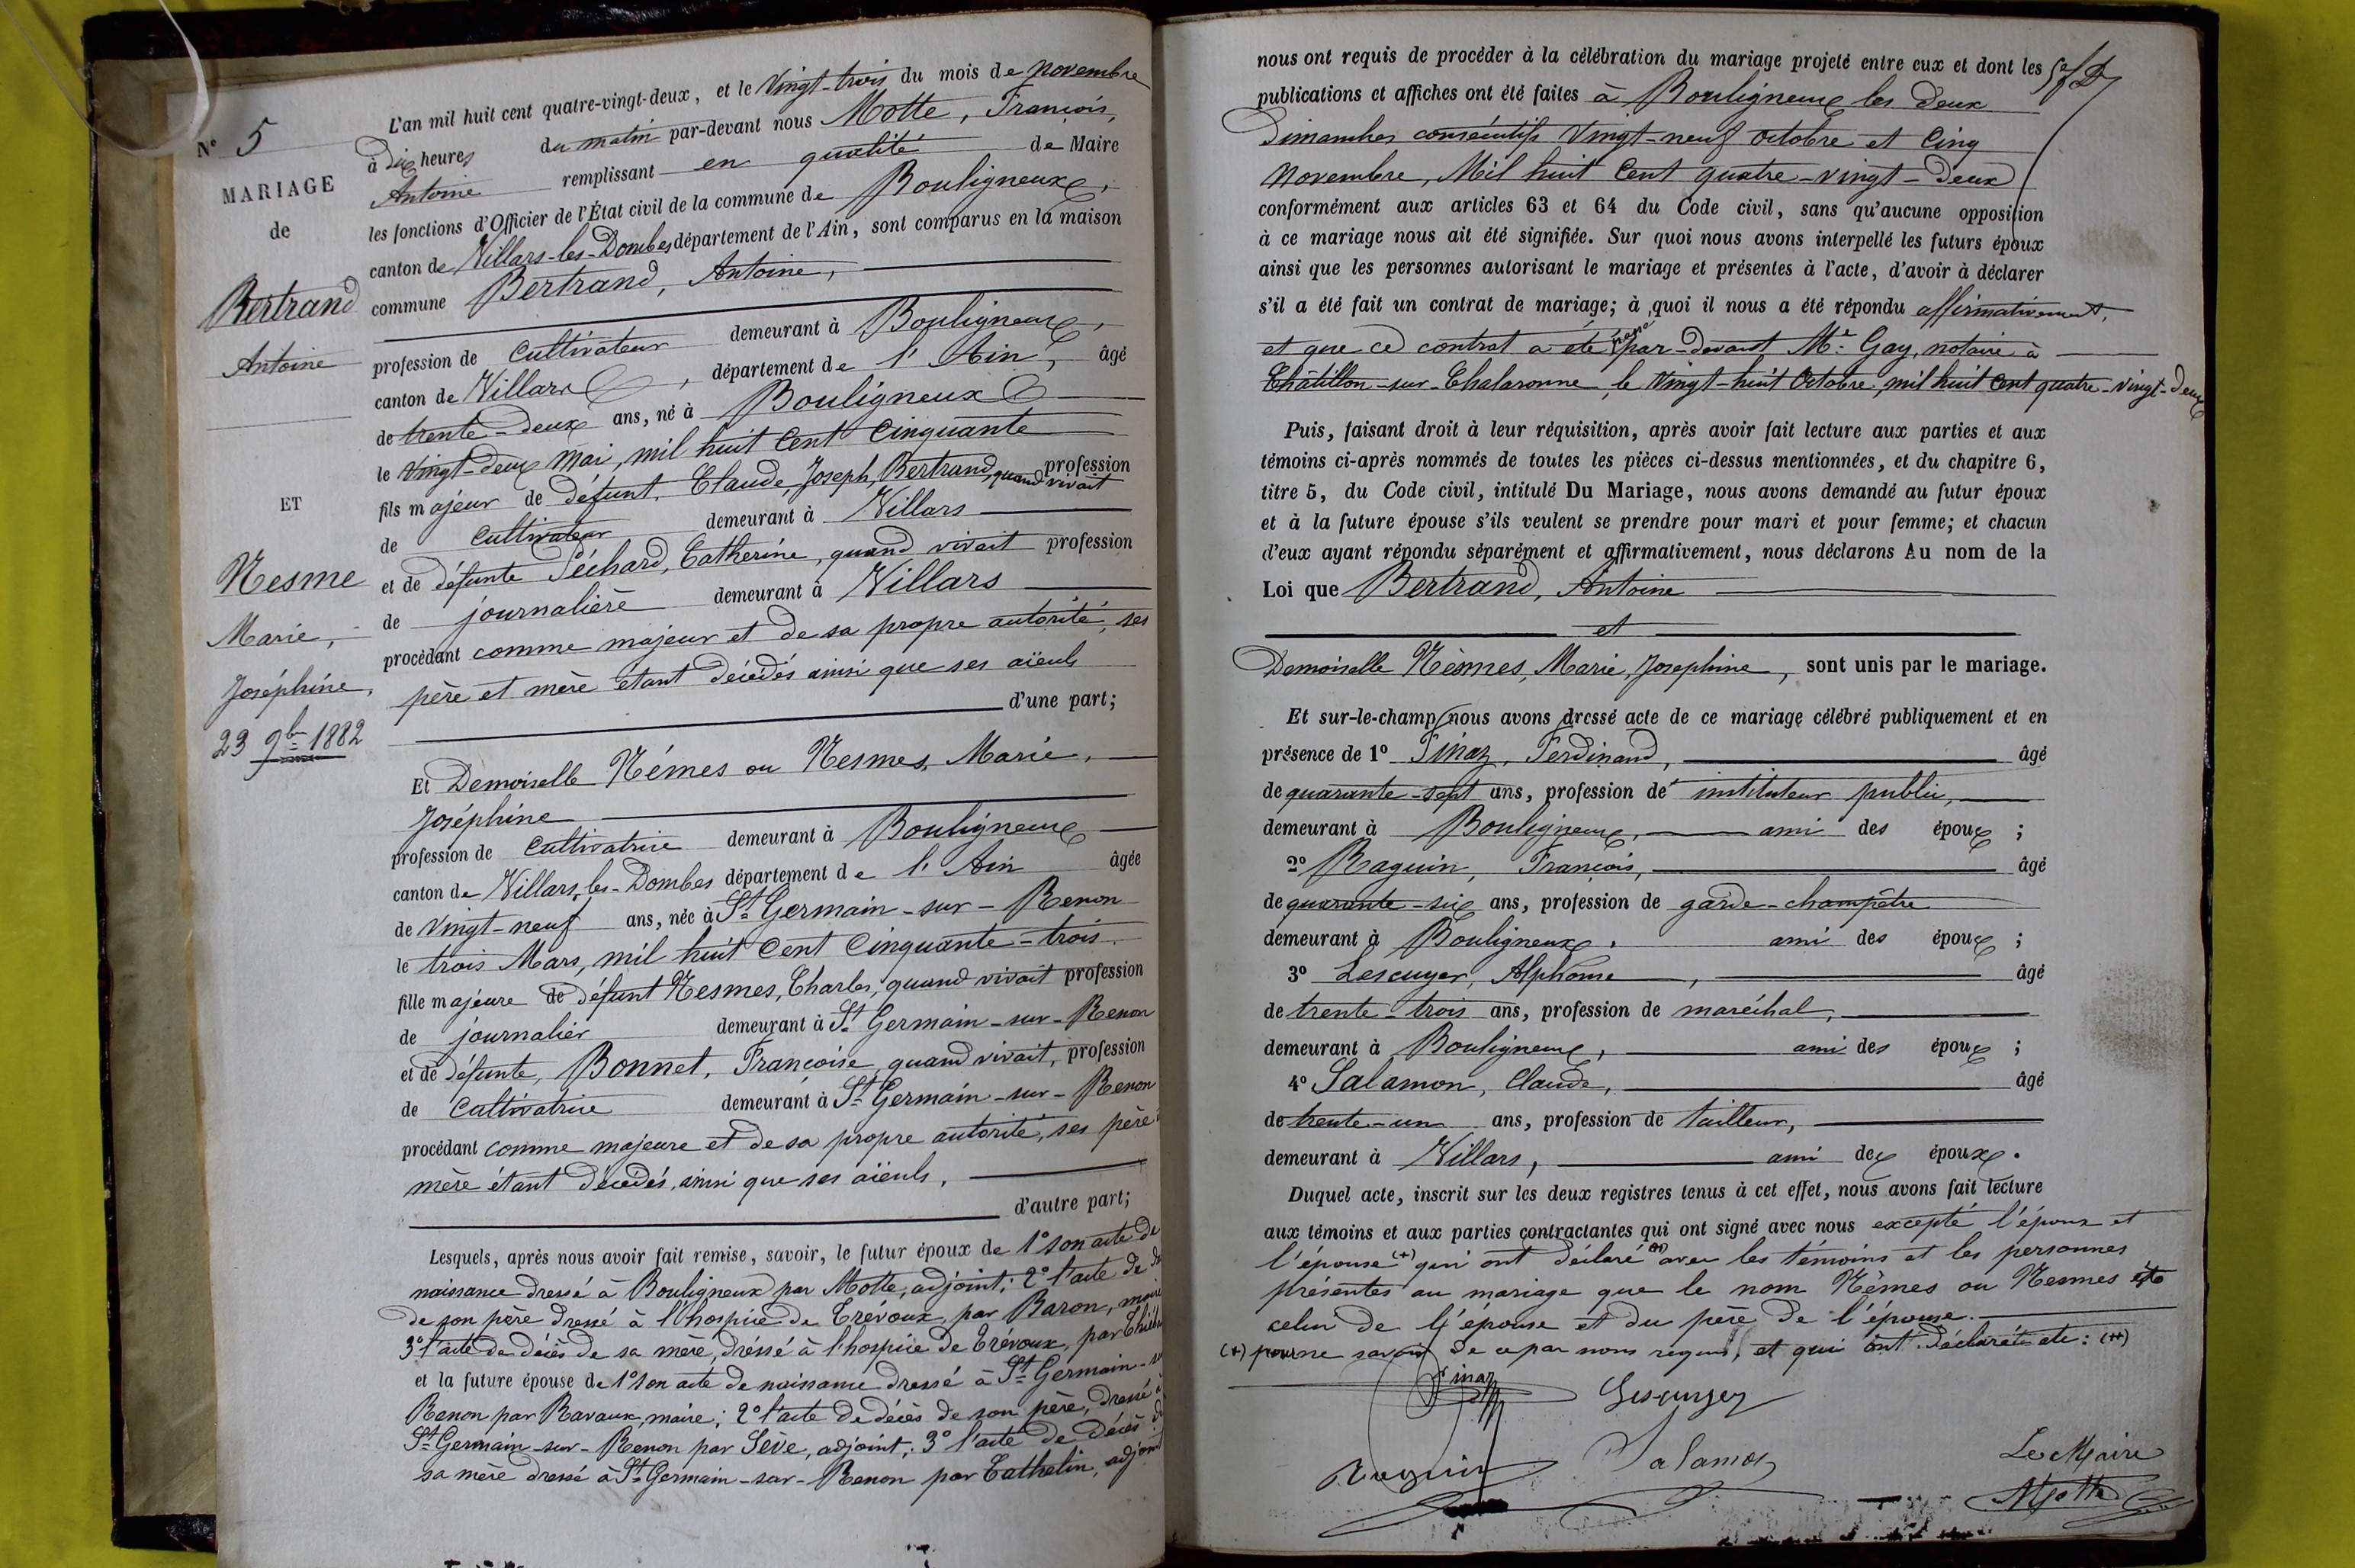 N° 5
MARIAGE
de
Bertrand
Antoine
ET
Nesme
Marie,
Joséphine,
23 9bre 1882
L'an mil huit cent quatre-vingt-deux, et le Vingt-trois du mois de novembre
à Dix heures du matin par-devant nous Motte, François,
Antoine remplissant en qualité de Maire
les fonctions d'Officier de l'État civil de la commune de Bouligneux,
canton de Villars-les-Dombes département de l'Ain, sont comparus en la maison
commune Bertrand, Antoine,
profession de Cultivateur demeurant à Bouligneux,
canton de Villars, département de l'Ain, âgé
de trente-deux ans, né à Bouligneux
le Vingt-deux Mai, mil huit Cent Cinquante
fils majeur de défunt, Claude, Joseph, Bertrand, quand vivait profession
de Cultivateur demeurant à Villars
et de défunte Péchard, Catherine, quand vivait profession
de journalière demeurant à Villars
procédant comme majeur et de sa propre autorité, ses
père et mère étant décédés ainsi que ses aïeuls
d'une part;
Et Demoiselle Némes ou Nesmes, Marie,
Joséphine
profession de Cultivatrice demeurant à Bouligneux
canton de Villars, les-Dombes département de l'Ain âgée
de Vingt-neuf ans, née à St Germain-sur-Renon
le trois Mars, mil huit Cent Cinquante-trois.
fille majeure de défunt Nesmes, Charles, quand vivait profession
de journalier demeurant à St Germain-sur-Renon
et de défunte, Bonnet, Françoise, quand vivait, profession
de Cultivatrice demeurant à St Germain-sur-Renon
procédant comme majeure et de sa propre autorité, ses père
mère étant décédés, ainsi que ses aïeuls,
d'autre part;
Lesquels, après nous avoir fait remise, savoir, le futur époux de 1° son acte de
naissance dressé à Bouligneux par Motte, adjoint; 2° l'acte de
de son père dressé à l'hospice de Trévoux, par Baron, maire
3° l'acte de décès de sa mère, dressé à l'hospice de Trévoux, par
et la future épouse de 1° son acte de naissance dressé à St Germain-
Renon par Ravaux, maire; 2° l'acte de décès de son père, dressé à
St Germain-sur-Renon par Sève, adjoint; 3° l'acte de Décès de
sa mère dressé à St Germain-sur-Renon par Cathelin, adjoint
nous ont requis de procéder à la célébration du mariage projeté entre eux et dont les
publications et affiches ont été faites à Bouligneux les deux
Dimanches consécutifs Vingt-neuf Octobre et Cinq
Novembre, Mil huit Cent quatre-vingt-Deux
conformément aux articles 63 et 64 du Code civil, sans qu'aucune opposition
à ce mariage nous ait été signifiée. Sur quoi nous avons interpellé les futurs époux
ainsi que les personnes autorisant le mariage et présentes à l'acte, d'avoir à déclarer
s'il a été fait un contrat de mariage; à quoi il nous a été répondu affirmativement,
et que ce contrat a été passé par-devant Me Gay, notaire à
Châtillon-sur-Chalaronne, le Vingt-huit Octobre, mil huit Cent quatre-vingt-deux
Puis, faisant droit à leur réquisition, après avoir fait lecture aux parties et aux
témoins ci-après nommés de toutes les pièces ci-dessus mentionnées, et du chapitre 6,
titre 5, du Code civil, intitulé Du Mariage, nous avons demandé au futur époux
et à la future épouse s'ils veulent se prendre pour mari et pour femme; et chacun
d'eux ayant répondu séparément et affirmativement, nous déclarons Au nom de la
Loi que Bertrand, Antoine
et
Demoiselle Nèsmes, Marie, Josephine, sont unis par le mariage.
Et sur-le-champ nous avons dressé acte de ce mariage célébré publiquement et en
présence de 1° Finaz, Ferdinand, âgé
de quarante-sept ans, profession de instituteur public,
demeurant à Bouligneux, ami des époux;
2° Raguin, François, âgé
de quarante-six ans, profession de garde-champêtre
demeurant à Bouligneux, ami des époux;
3° Lescuyer, Alphonse, âgé
de trente-trois ans, profession de maréchal,
demeurant à Bouligneux, ami des époux;
4° Salamon, Claude, âgé
de trente-un ans, profession de tailleur,
demeurant à Villars, ami des époux.
Duquel acte, inscrit sur les deux registres tenus à cet effet, nous avons fait lecture
aux témoins et aux parties contractantes qui ont signé avec nous excepté l'époux et
l'épouse (+) qui ont déclaré avec les témoins et les personnes
présentes au mariage que le nom Némes ou Nesmes est
celui de l'épouse et du père de l'épouse.
(+) pour ne savoir de ce par nous requis, et qui ont déclaré etc: (++)
Finaz Lescuyer
Raguin Salamon
Le Maire
Motte